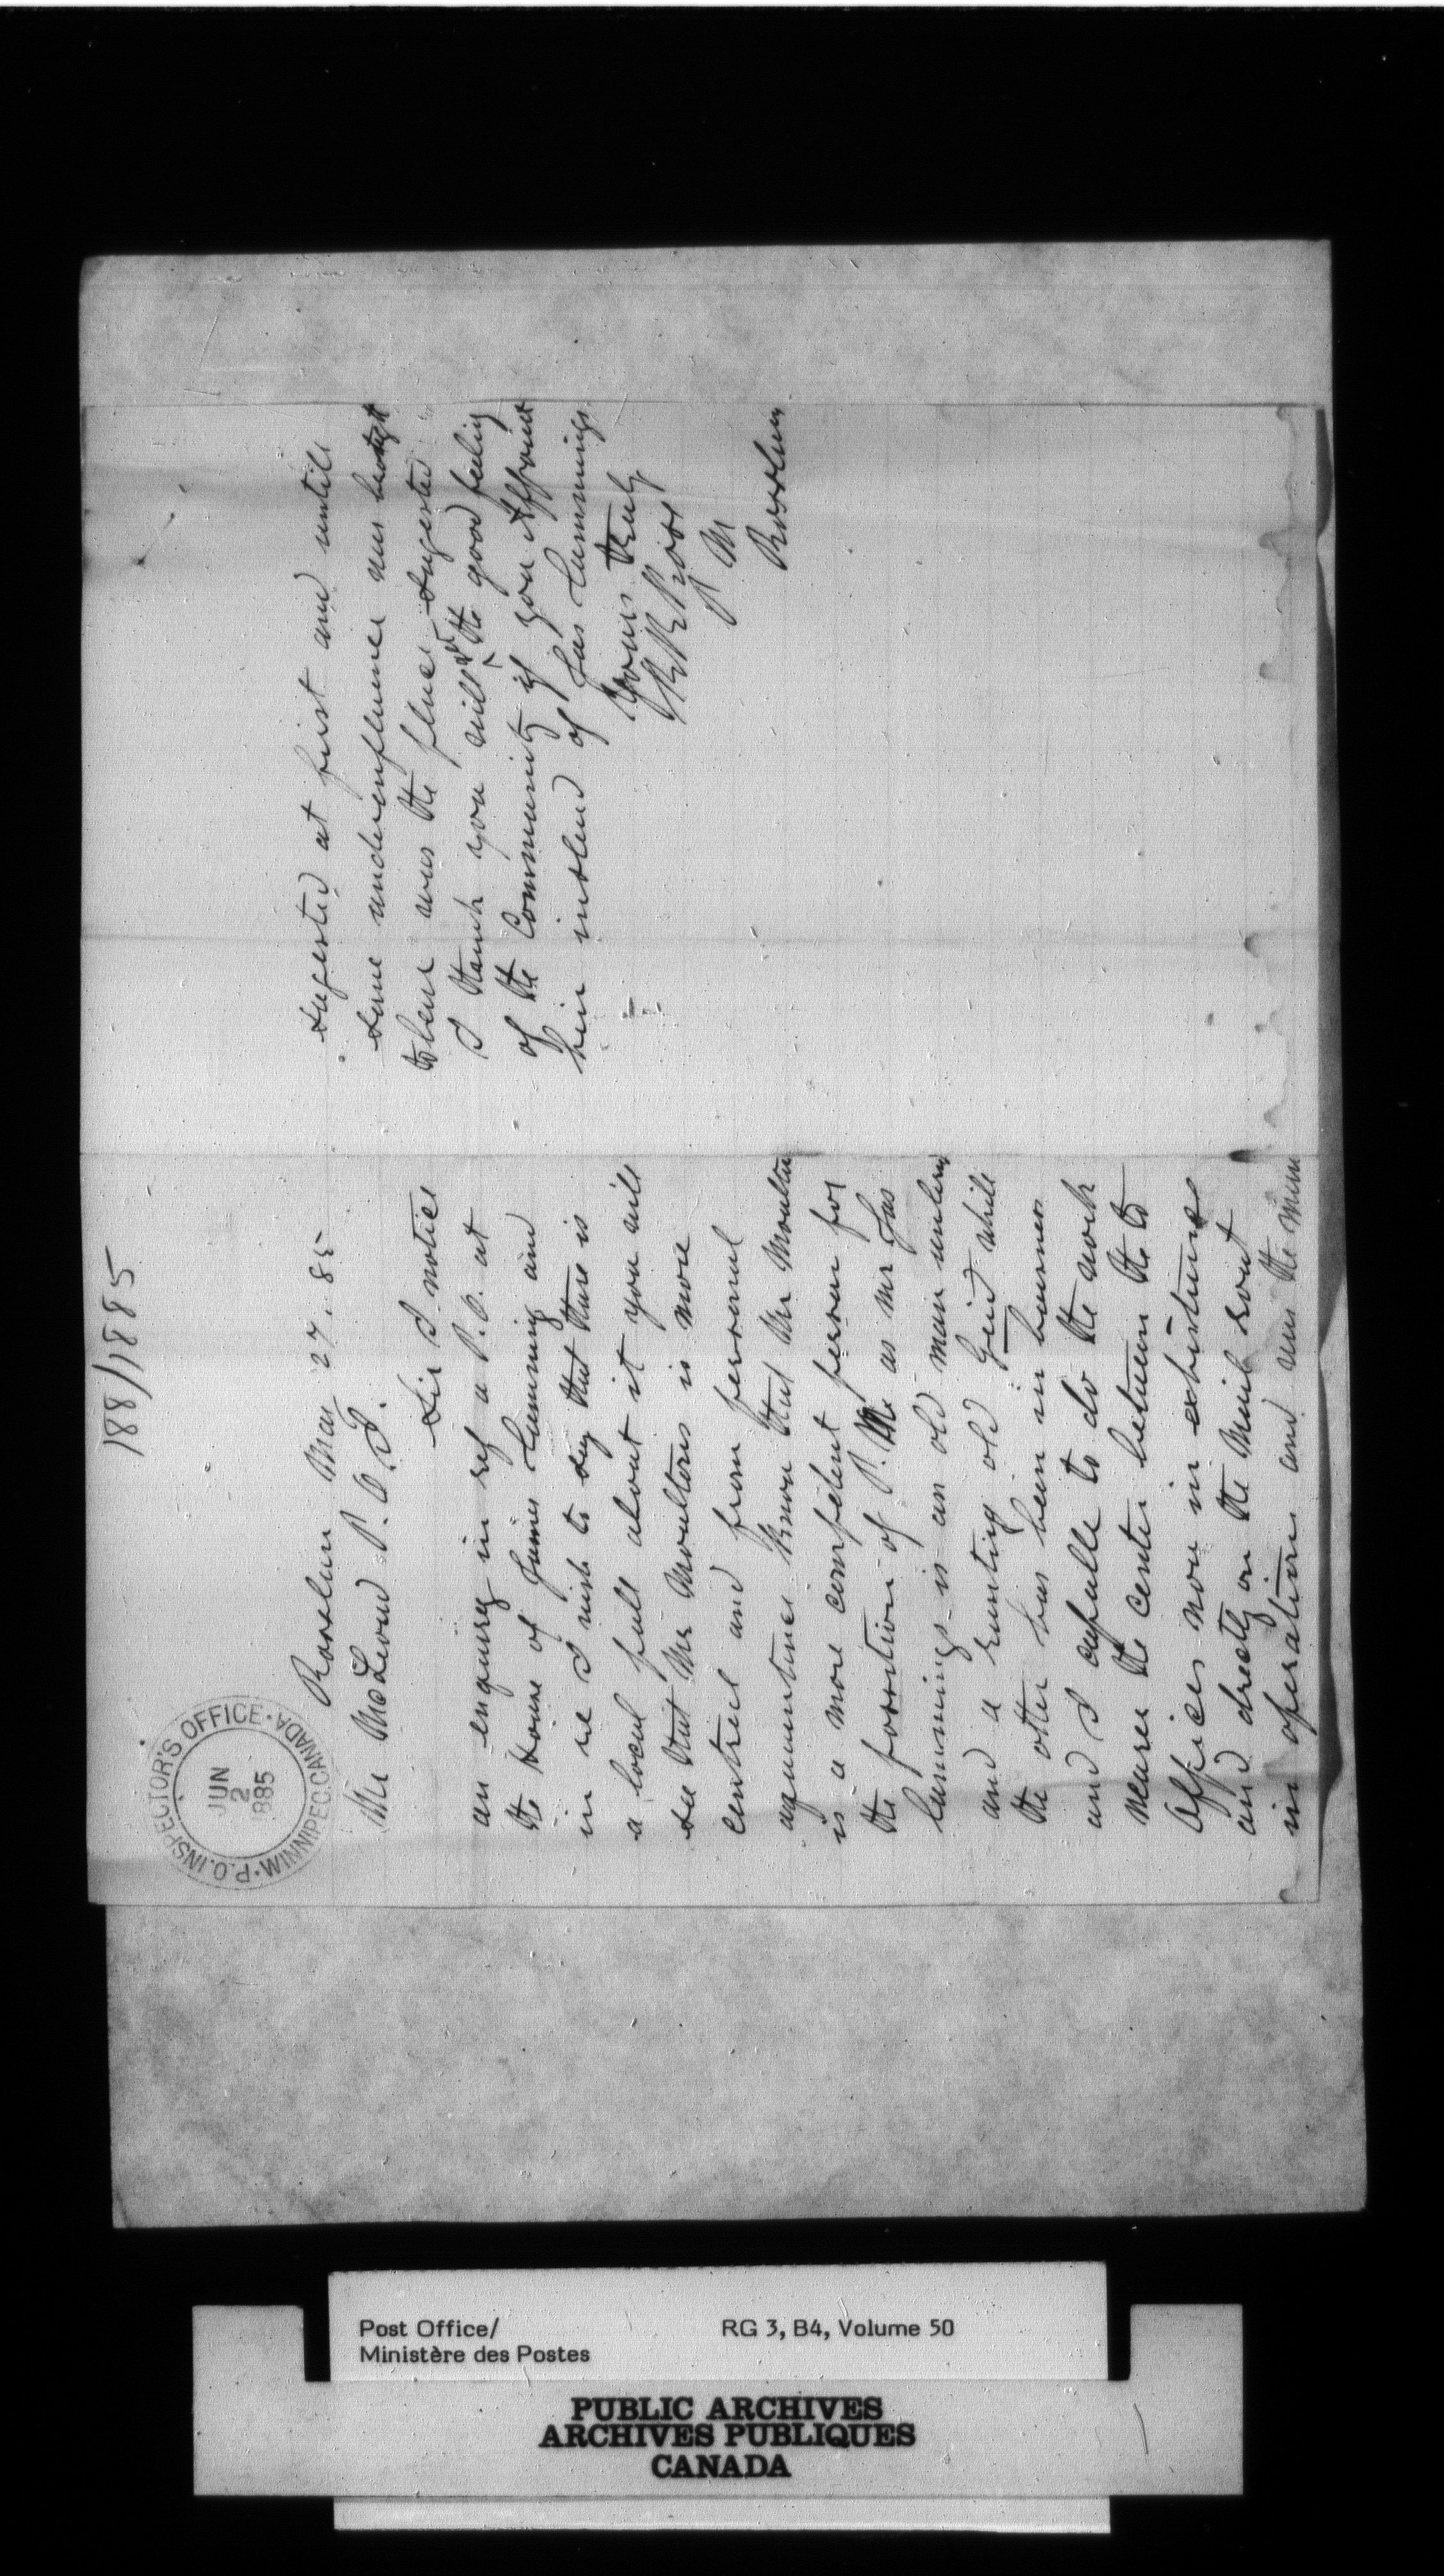 188/1885
P.O. INSPECTOR'S OFFICE · WINNIPEG. CANADA ·
JUN
2
1885
Rosslun May 27. 85
Mr McLeod P. O. I.
Sir I notice
an enquiry in ref a P. O. at
the House of James Cumming and
in re I wish to say that there is
a local pull about it you will
see that Mr Moultons is more
central and from personal
aquantance know that Mr Moulton
is a more competent person for
the possition of P. M as Mr Jas
Cummings is an old man
and a old while
the other has been in business
and I capable to do the work
nearer the center between the to
Offices now in exhistance
and directly on the Mail rout
in operation and was the
sugested at first and untill
some underinfluence was brought
to bear was the place sugested
I thank you will the good feeling
of the Community if you Appoint
him instead of Jas Cummings.
yours truly
P M
Rosslun
Post Office/
Ministère des Postes
RG 3, B4, Volume 50
PUBLIC ARCHIVES
ARCHIVES PUBLIQUES
CANADA